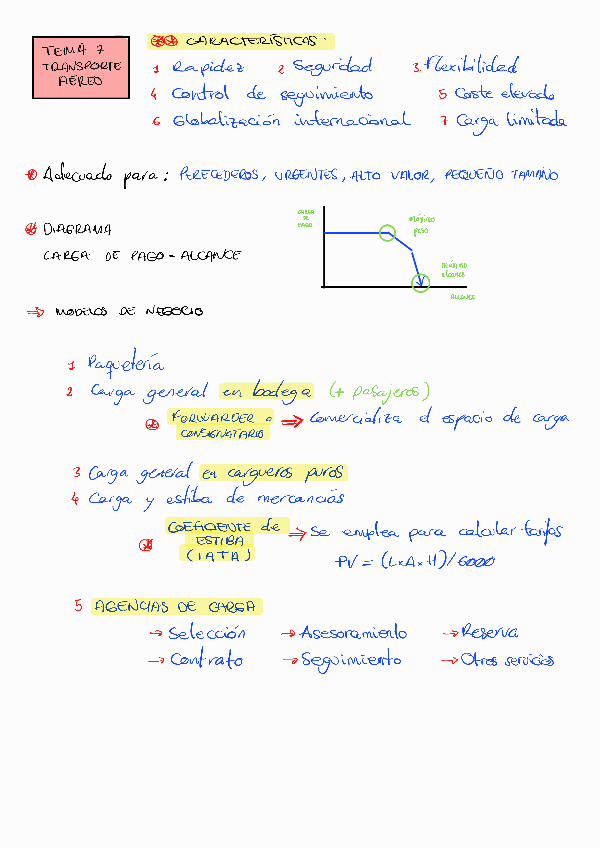 TEMA 7
TRANSPORTE
AÉREO
CARACTERÍSTICAS:
1 Rapidez 2 Seguridad 3. Flexibilidad
4 Control de seguimiento 5 Coste elevado
6 Globalización internacional 7 Carga limitada
Adecuado para: PERECEDEROS, URGENTES, ALTO VALOR, PEQUEÑO TAMAÑO
DIAGRAMA
CARGA DE PAGO - ALCANCE
CARGA
DE
PAGO
MÁXIMO
PESO
MÁXIMO
ALCANCE
ALCANCE
⇒ MODELOS DE NEGOCIO
1 Paquetería
2 Carga general en bodega (+ pasajeros)
FORWARDER o
CONSIGNATARIO ⇒ Comercializa el espacio de carga
3 Carga general en cargueros puros
4 Carga y estiba de mercancías
COEFICIENTE de
ESTIBA
(IATA)
⇒ Se emplea para calcular tarifas
PV = (L×A×H)/6000
5 AGENCIAS DE CARGA
→ Selección → Asesoramiento → Reserva
→ Contrato → Seguimiento → Otros servicios